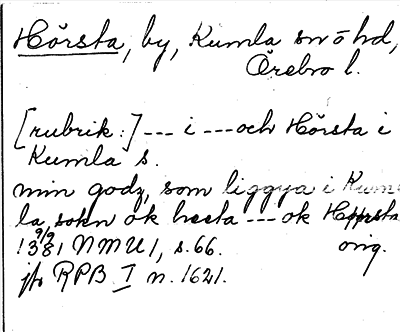 Hörsta, by, Kumla sn o hd,
Örebro l.
[rubrik:] --- i --- och Hörsta i
Kumla s.
min godz, som liggya i Kum=
la sokn ok hæsta --- ok Hørsta
9/9
1381 NMU1, s. 66. orig.
jfr RPB I n. 1621.